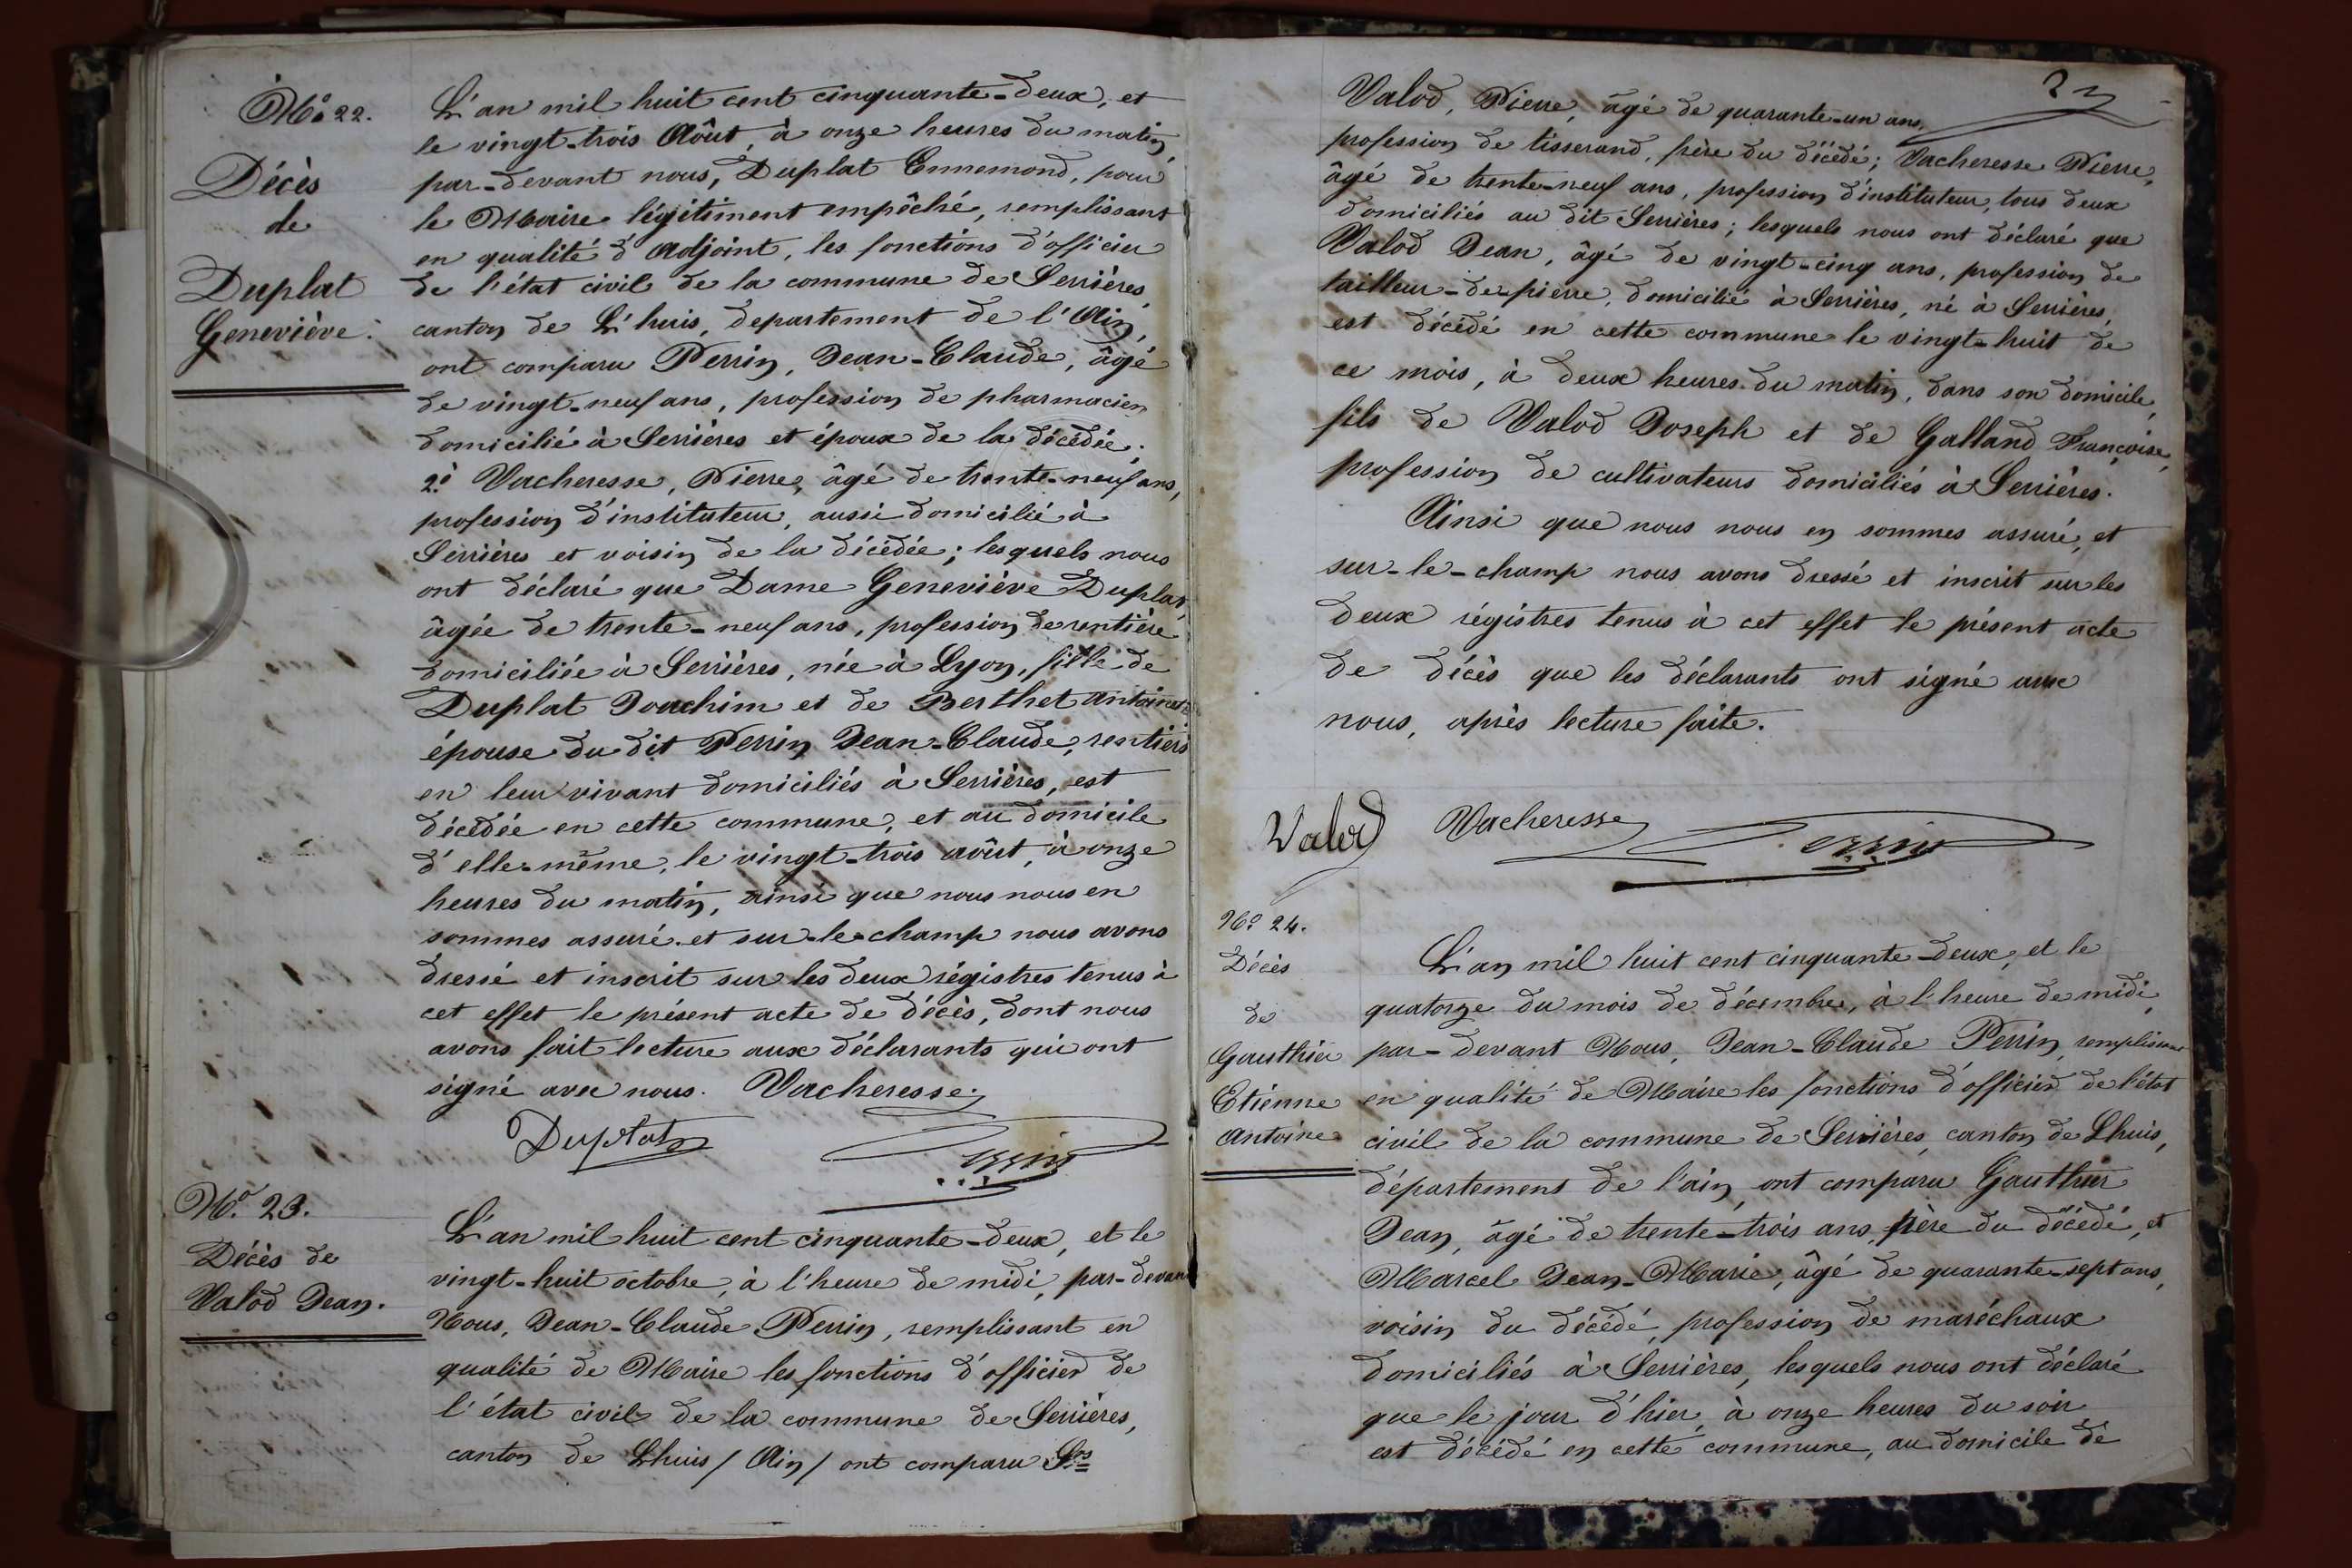 N.° 22.
Décès
de
Duplat
Geneviève.
L'an mil huit cent cinquante-deux, et
le vingt-trois Aôut, à onze heures du matin,
par-devant nous, Duplat Ennemond, pour
le Maire légitiment empêché, remplissant
en qualité d'Adjoint, les fonctions d'officier
de l'état civil de la commune de Serrières,
canton de L'huis, departement de l'Ain,
ont comparu Perrin, Jean-Claude, âgé
de vingt-neuf ans, profession de pharmacien
domicilié à Serrières et époux de la décédée;
2.° Vacheresse, Pierre, âgé de trente-neuf ans,
profession d'instituteur, aussi domicilié à
Serrières et voisin de la décédée; lesquels nous
ont déclaré que Dame Geneviève Duplat,
âgée de trente-neuf ans, profession de rentière
domiciliée à Serrières, née à Lyon, fille de
Duplat Joachim et de Berthet Antoinette
épouse du dit Perrin Jean-Claude, rentiers
en leur vivant domiciliés à Serrières, est
décédée en cette commune, et au domicile
d'elle-même, le vingt-trois aôut, à onze
heures du matin, ainsi que nous nous en
sommes assuré et sur-le-champ nous avons
dressé et inscrit sur les deux régistres tenus à
cet effet le présent acte de décès, dont nous
avons fait lecture aux déclarants qui ont
signé avec nous. Vacheresse
Duplat Perrin
N.° 23.
Décès de
Valod Jean.
L'an mil huit cent cinquante-deux, et le
vingt-huit octobre, à l'heure de midi, par-devant
Nous, Jean-Claude Perrin, remplissant en
qualité de Maire les fonctions d'officier de
l'état civil de la commune de Serrières,
canton de Lhuis / Ain / ont comparu Srs
23
Valod, Pierre, âgé de quarante-un ans,
profession de tisserand, frère du décédé; Vacheresse Pierre,
âgé de trente-neuf ans, profession d'instituteur, tous deux
domiciliés au dit Serrières; lesquels nous ont déclaré que
Valod Jean, âgé de vingt-cinq ans, profession de
tailleur-de-pierre, domicilié à Serrières, né à Serrières,
est décédé en cette commune le vingt-huit de
ce mois, à deux heures du matin, dans son domicile,
fils de Valod Joseph et de Galland Françoise,
profession de cultivateurs domiciliés à Serrières.
Ainsi que nous nous en sommes assuré, et
sur-le-champ nous avons dressé et inscrit sur les
deux régistres tenus à cet effet le présent acte
de décès que les déclarants ont signé avec
nous, après lecture faite.
Valod Vacheresse Perrin
N.° 24.
Décès
de
Gauthier
Etienne
Antoine
L'an mil huit cent cinquante-deux, et le
quatorze du mois de décembre, à l'heure de midi,
par-devant Nous, Jean-Claude Perrin, remplissant
en qualité de Maire les fonctions d'officier de l'état
civil de la commune de Serrières, canton de Lhuis,
département de l'ain, ont comparu Gauthier
Jean, âgé de trente-trois ans, père du décédé, et
Marcel Jean-Marie, âgé de quarante-sept ans,
voisin du décédé, profession de maréchaux
domiciliés à Serrières, lesquels nous ont déclaré
que le jour d'hier, à onze heures du soir
est décédé en cette commune, au domicile de